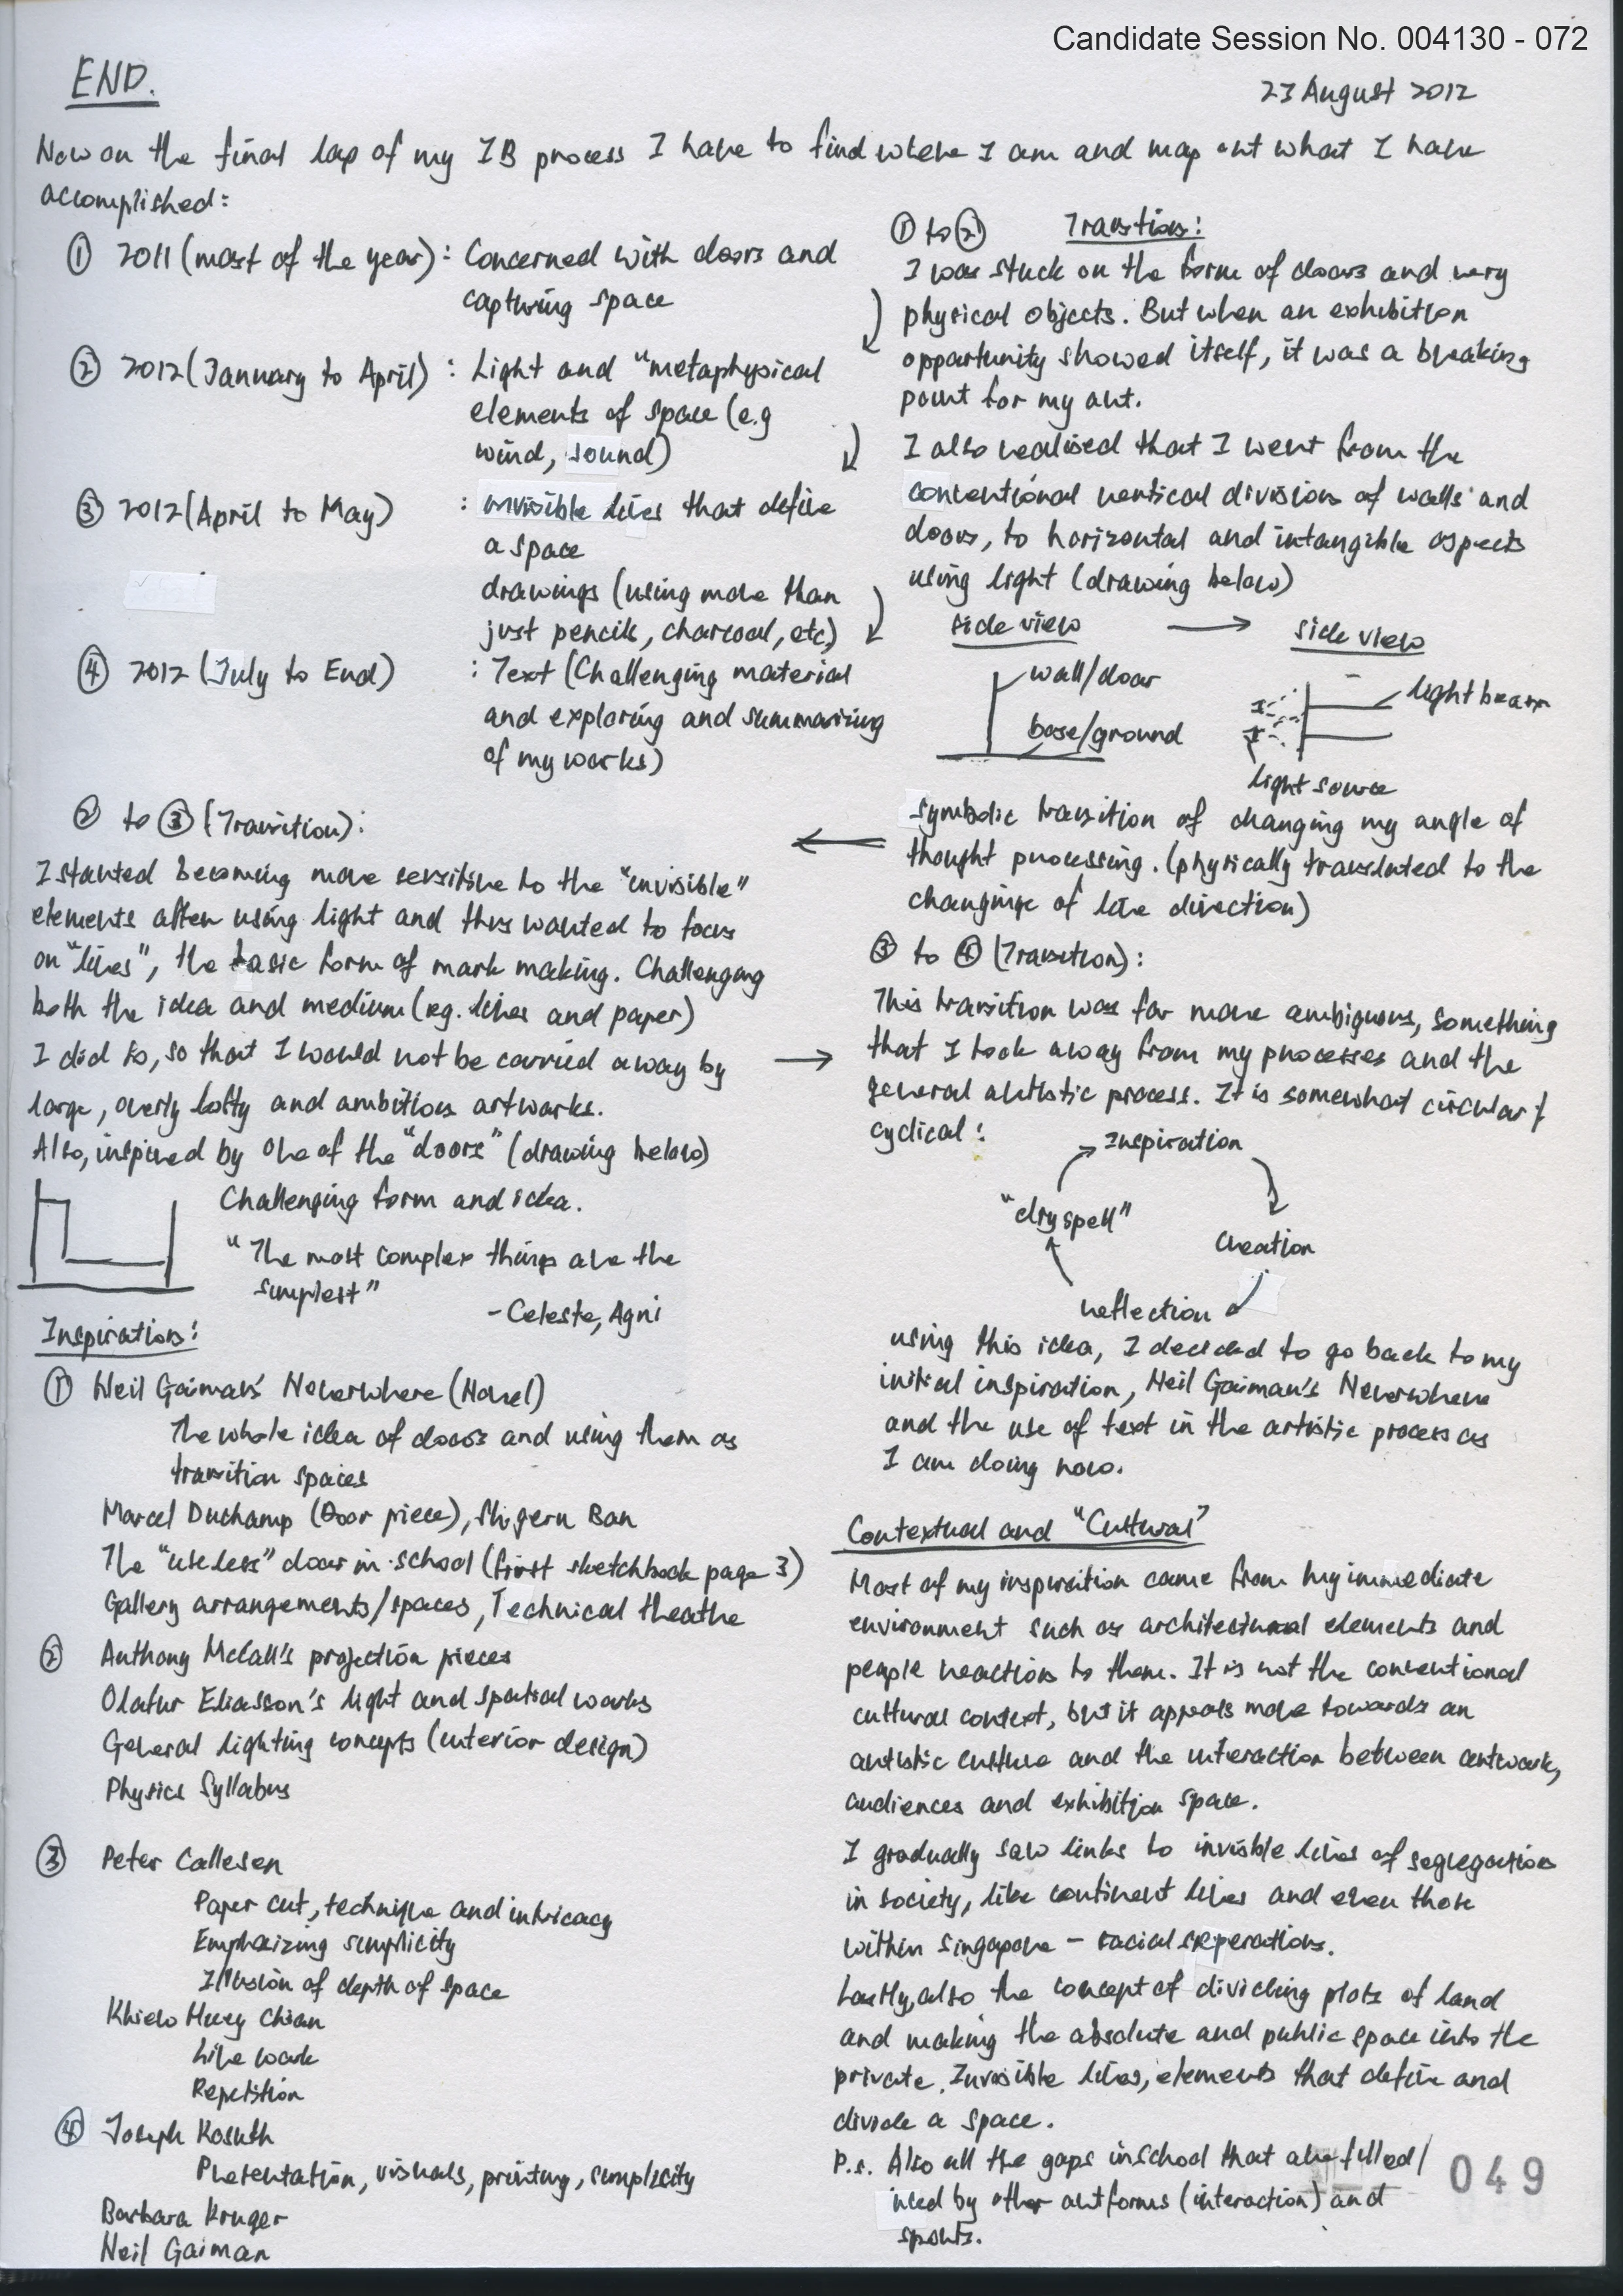 Candidate Session No. 004130 - 072
END.
23 August 2012
Now on the final lap of my IB process I have to find where I am and map out what I have
accomplished:
① 2011 (most of the year) : Concerned with doors and
capturing space
② 2012 (January to April) : Light and "metaphysical
elements of space (e.g
wind, sound)
③ 2012 (April to May) : invisible lines that define
a space
drawings (using more than
just pencils, charcoal, etc)
④ 2012 (July to End) : Text (Challenging material
and exploring and summarizing
of my works)
① to ② Transition:
I was stuck on the form of doors and very
physical objects. But when an exhibition
opportunity showed itself, it was a breaking
point for my art.
I also realised that I went from the
conventional vertical divisions of walls and
doors, to horizontal and intangible aspects
using light (drawing below)
side view → side view
wall/door
base/ground
light beam
light source
symbolic transition of changing my angle of
thought processing. (physically translated to the
changing of line direction)
② to ③ (Transition):
I started becoming more sensitive to the "invisible"
elements after using light and thus wanted to focus
on "lines", the basic form of mark making. Challenging
both the idea and medium (eg. lines and paper)
I did so, so that I would not be carried away by
large, overly lofty and ambitious artworks.
Also, inspired by one of the "doors" (drawing below)
Challenging form and idea.
"The most complex things are the
simplest"
- Celeste, Agni
③ to ④ (Transition):
This transition was far more ambiguous, something
that I took away from my processes and the
general artistic process. It is somewhat circular /
cyclical:
Inspiration
Creation
reflection
"dry spell"
using this idea, I decided to go back to my
initial inspiration, Neil Gaiman's Neverwhere
and the use of text in the artistic process as
I am doing now.
Inspiration:
① Neil Gaiman's Neverwhere (Novel)
The whole idea of doors and using them as
transition spaces
Marcel Duchamp (Door piece), Shigeru Ban
The "useless" door in school (first sketchbook page 3)
Gallery arrangements/spaces, Technical theatre
② Anthony McCall's projection pieces
Olafur Eliasson's light and spatial works
General lighting concepts (interior design)
Physics Syllabus
③ Peter Callesen
Paper cut, technique and intricacy
Emphasizing simplicity
Illusion of depth of space
Chian
Line work
Repetition
④ Joseph Kosuth
Presentation, visuals, printing, simplicity
Barbara Kruger
Neil Gaiman
Contextual and "Cultural"
Most of my inspiration came from my immediate
environment such as architectural elements and
people reaction to them. It is not the conventional
cultural context, but it appeals more towards an
artistic culture and the interaction between artwork,
audiences and exhibition space.
I gradually saw links to invisible lines of segregation
in society, like continent lines and even those
within Singapore – racial seperations.
Lastly, also the concept of dividing plots of land
and making the absolute and public space into the
private. Invisible lines, elements that define and
divide a space.
P.s. Also all the gaps in school that are filled/
used by other art forms (interaction) and
sports.
049